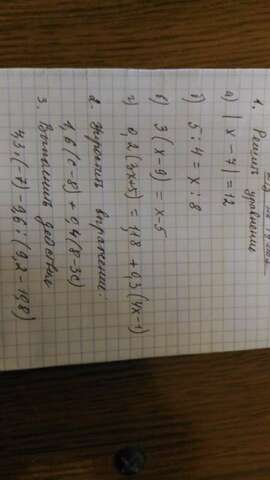 1. Решить уравнение
а) |x - 7| = 12
б) 5 : 4 = x : 8
в) 3(x-9) = x-5
г) 0,2(3x+5) = 1,18 + 0,3(4x-1)
2. Упростить выражение:
1,6(c-8) + 0,4(8-3c)
3. Вычислить
4,3·(-7) - 9,6 : (9,2 - 10,8)